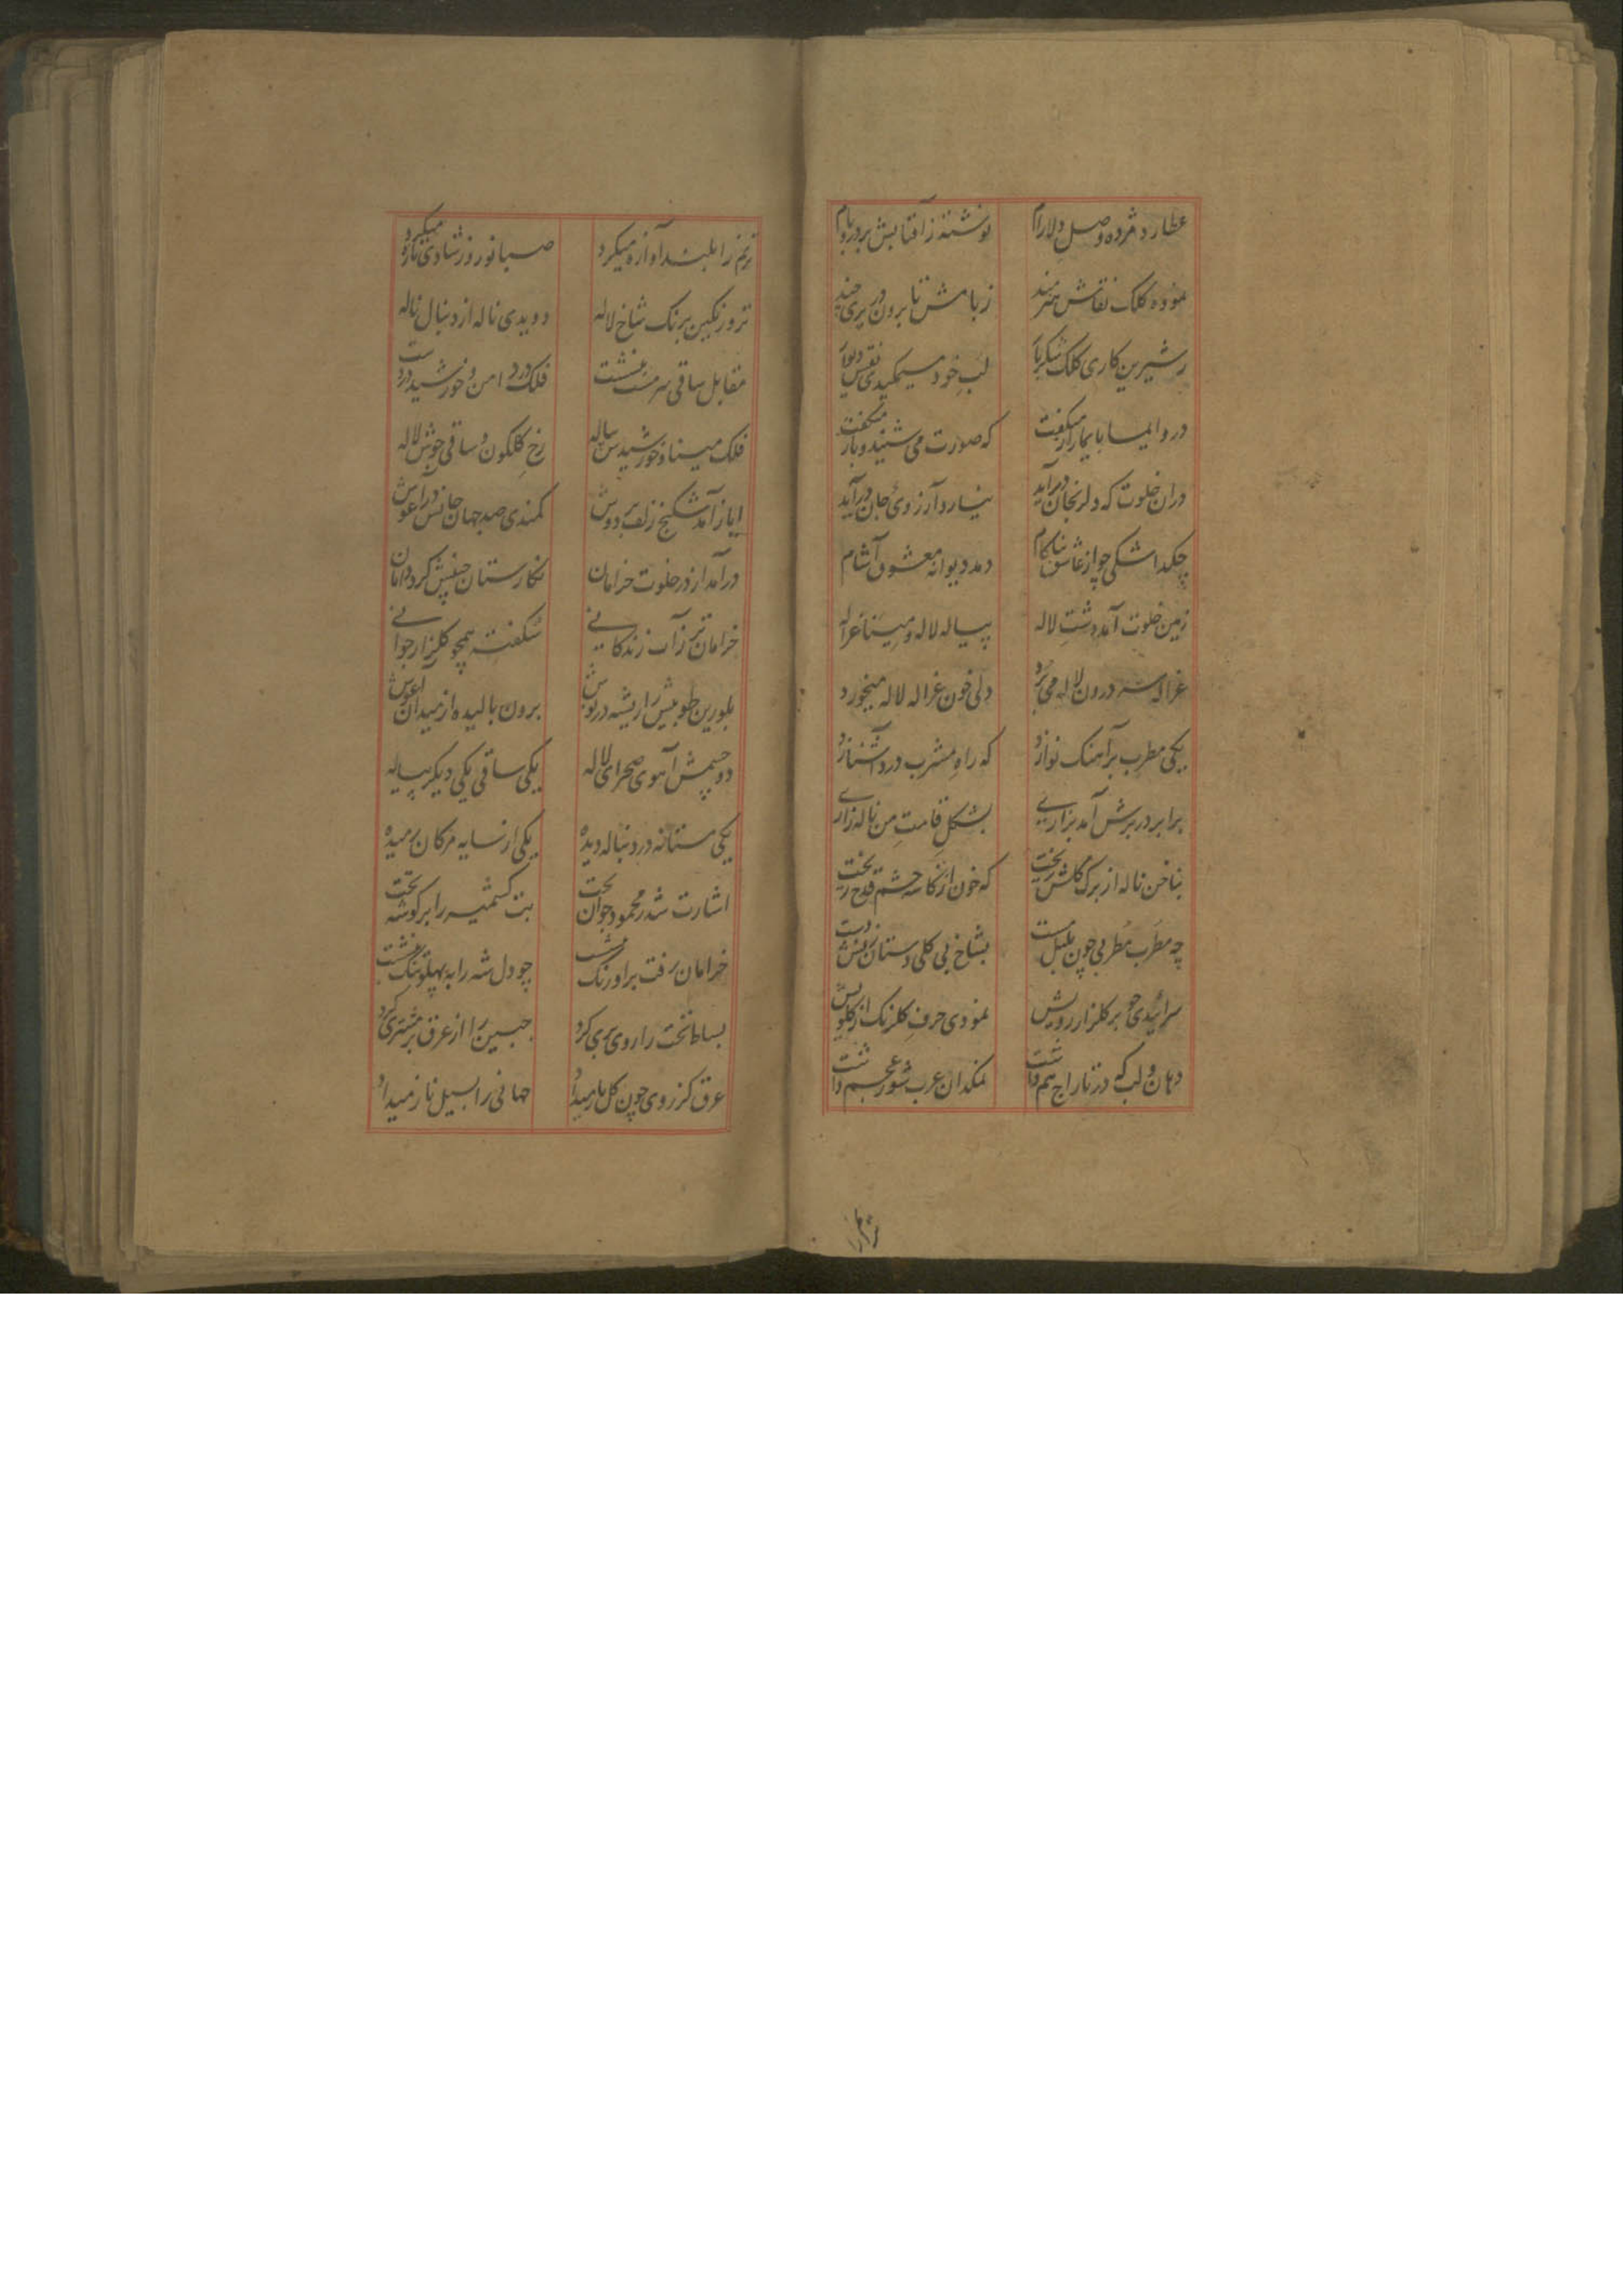 عطارد مژده وصل دلارام نوشته ز آفتابش بر در و بام
نموده کلک نقاش هنرمند ز بامش تا برون در پری چند
ز شیرین کاری کلک شکربار لب خود میمکیدی نقش دیوار
در و ایما بایما راز میکفت که صورت می شنید و باز میکفت
دران خلوت که دلرنجان درآید نیارد آرزوی جان درآید
چکد اشکی چو از عاشق ناکام دمد دیوانه معشوق آشام
زمین خلوت آمد دشت لاله پیاله لاله و مینا غزاله
غزاله سر درون لاله می برد دلی خون غزاله لاله میخورد
یکی مطرب بر آهنک نوا زد که راه مشرب درد آشنا زد
برابر در برش آمد بزاری بشکل قامت من ناله زاری
بناخن ناله از برک کلش ریخت که خون از کاسه چشم قدح ریخت
چه مطرب مطربی چون بلبل مست بشاخ بی کلی دستان زنش دست
سرائیدی چو بر کلزار رویش نمودی حرف کلرنک از کلویش
دهان و لب که در تاراج هم داشت نمکدان عرب شور عجم داشت
ترنم را بلند آوازه میکرد صبا نوروز شادی تازه میکرد
تر و رنکین برنک شاخ لاله دویدی ناله از دنبال ناله
مقابل ساقی سرمست بنشست فلک در دامن و خورشید در دست
فلک مینا و خورشیدش پیاله رخ کلکون ساقی جوش لاله
ایاز آمد شکنج زلف بر دوش کمندی صد جهان جانش در آغوش
درآمد از در خلوت خرامان نکارستان چینش کرد دامان
خرامان تر ز آب زندکانی شکفته همچو کلزار جوانی
بلورین طوبیش را ریشه در نوش برون بالیده از میدان آغوش
دو چشمش آهوی صحرای لاله یکی ساقی یکی دیکر پیاله
یکی مستانه در دنباله دیده یکی از سایه مژکان رمیده
اشارت شد ز محمود جوان بخت بت کشمیر را بر کوشه تخت
خرامان رفت بر اورنک بنشست چو دل شه را به پهلو تنک بنشست
بساط تخت را روی پری کرد جبین را از عرق پر مشتری کرد
عرق کز روی چون کل بار میداد جهانی را بسیل ناز میداد